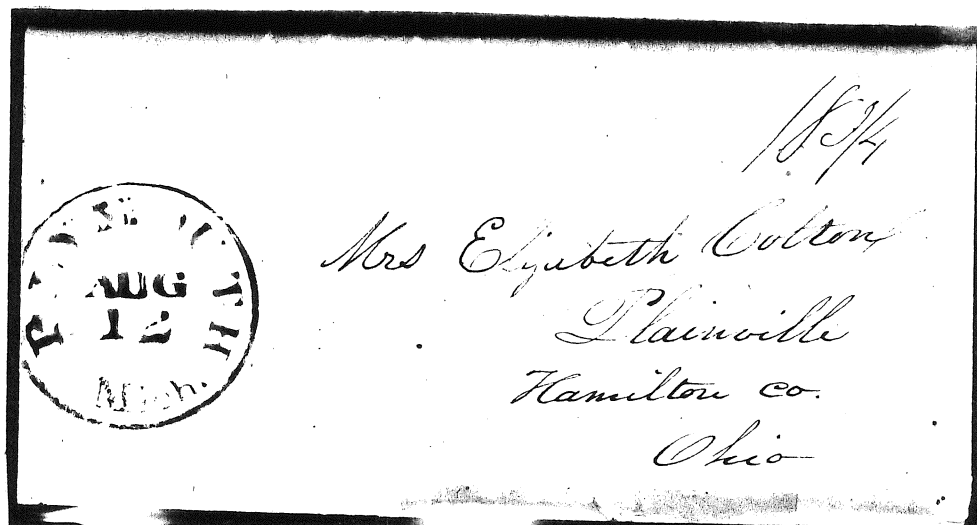 18 3/4
PLYMOUTH
AUG
12
Mich.
Mrs Elizabeth Colton
Plainville
Hamilton co.
Ohio